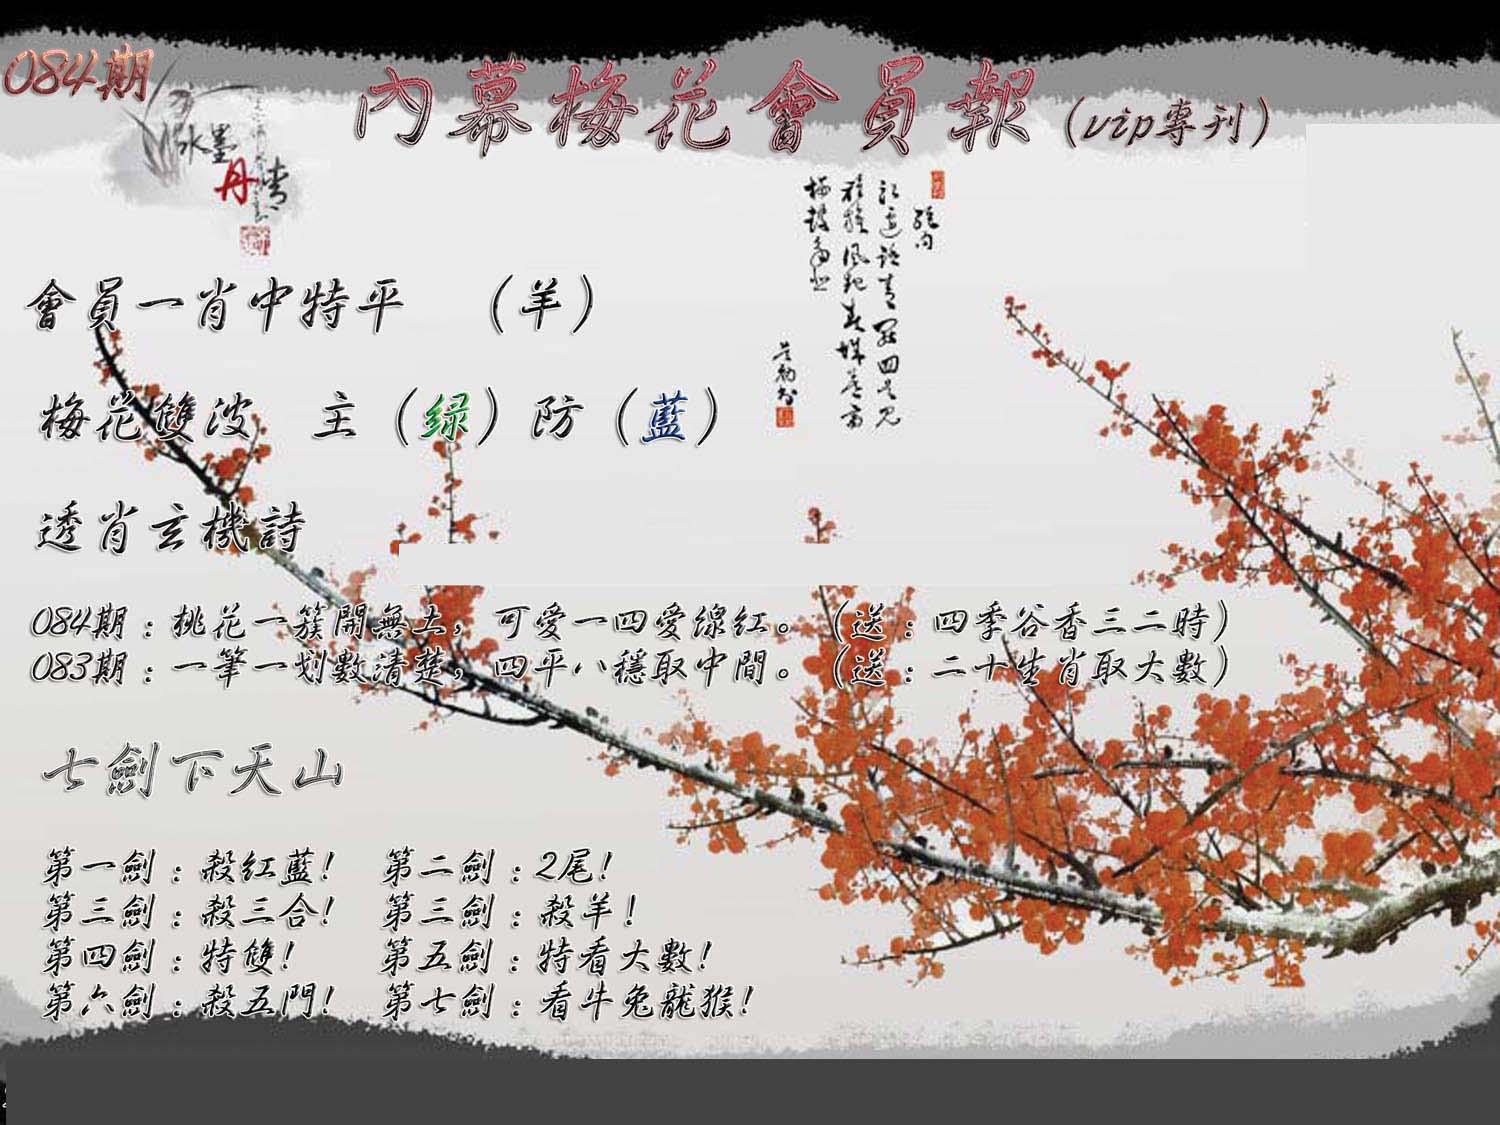 084期
內幕梅花會員報（vip專刊）
水墨
丹青
會員一肖中特平　（羊）
梅花雙波　主（绿）防（藍）
透肖玄機詩
084期：桃花一簇開無土，可愛一四愛線紅。（送：四季谷香三二時）
083期：一筆一划數清楚，四平八穩取中間。（送：二十生肖取大數）
七劍下天山
第一劍：殺紅藍！　第二劍：2尾！
第三劍：殺三合！　第三劍：殺羊！
第四劍：特雙！　第五劍：特看大數！
第六劍：殺五門！　第七劍：看牛兔龍猴！